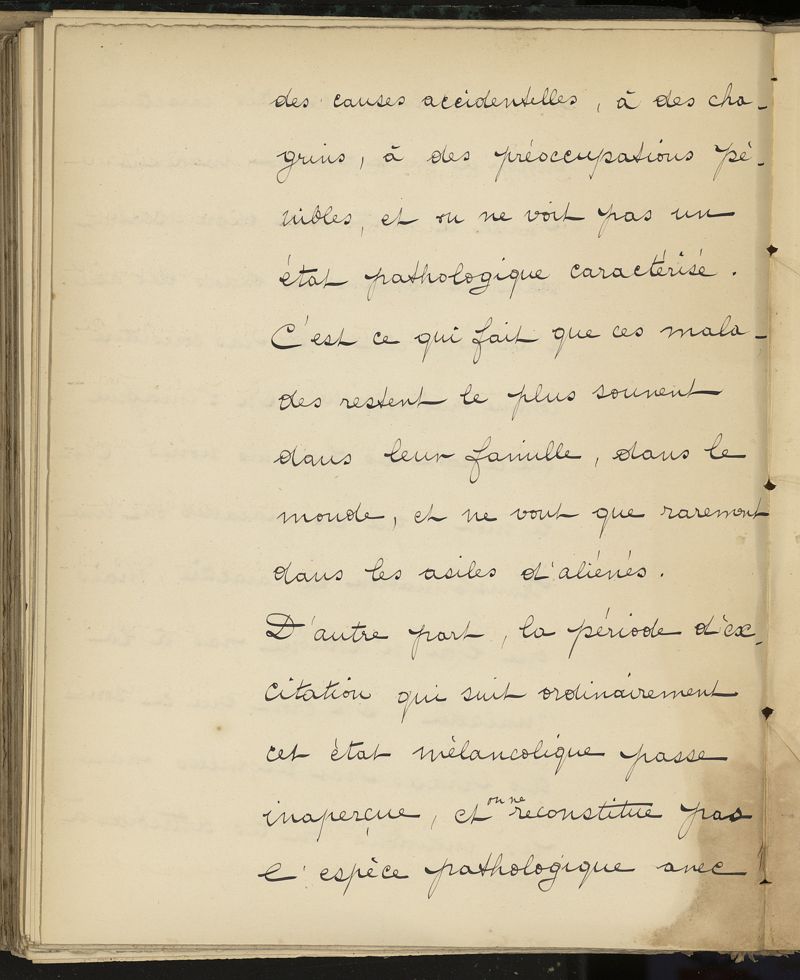 des causes accidentelles, à des cha-
grins, à des préoccupations pé-
nibles, et on ne voit pas un
état pathologique caractérisé.
C'est ce qui fait que ces mala-
des restent le plus souvent
dans leur famille, dans le
monde, et ne vont que rarement
dans les asiles d'aliénés.
D'autre part, la période d'ex-
citation qui suit ordinairement
cet état mélancolique passe
inaperçue, et on ne reconstitue pas
l'espèce pathologique avec